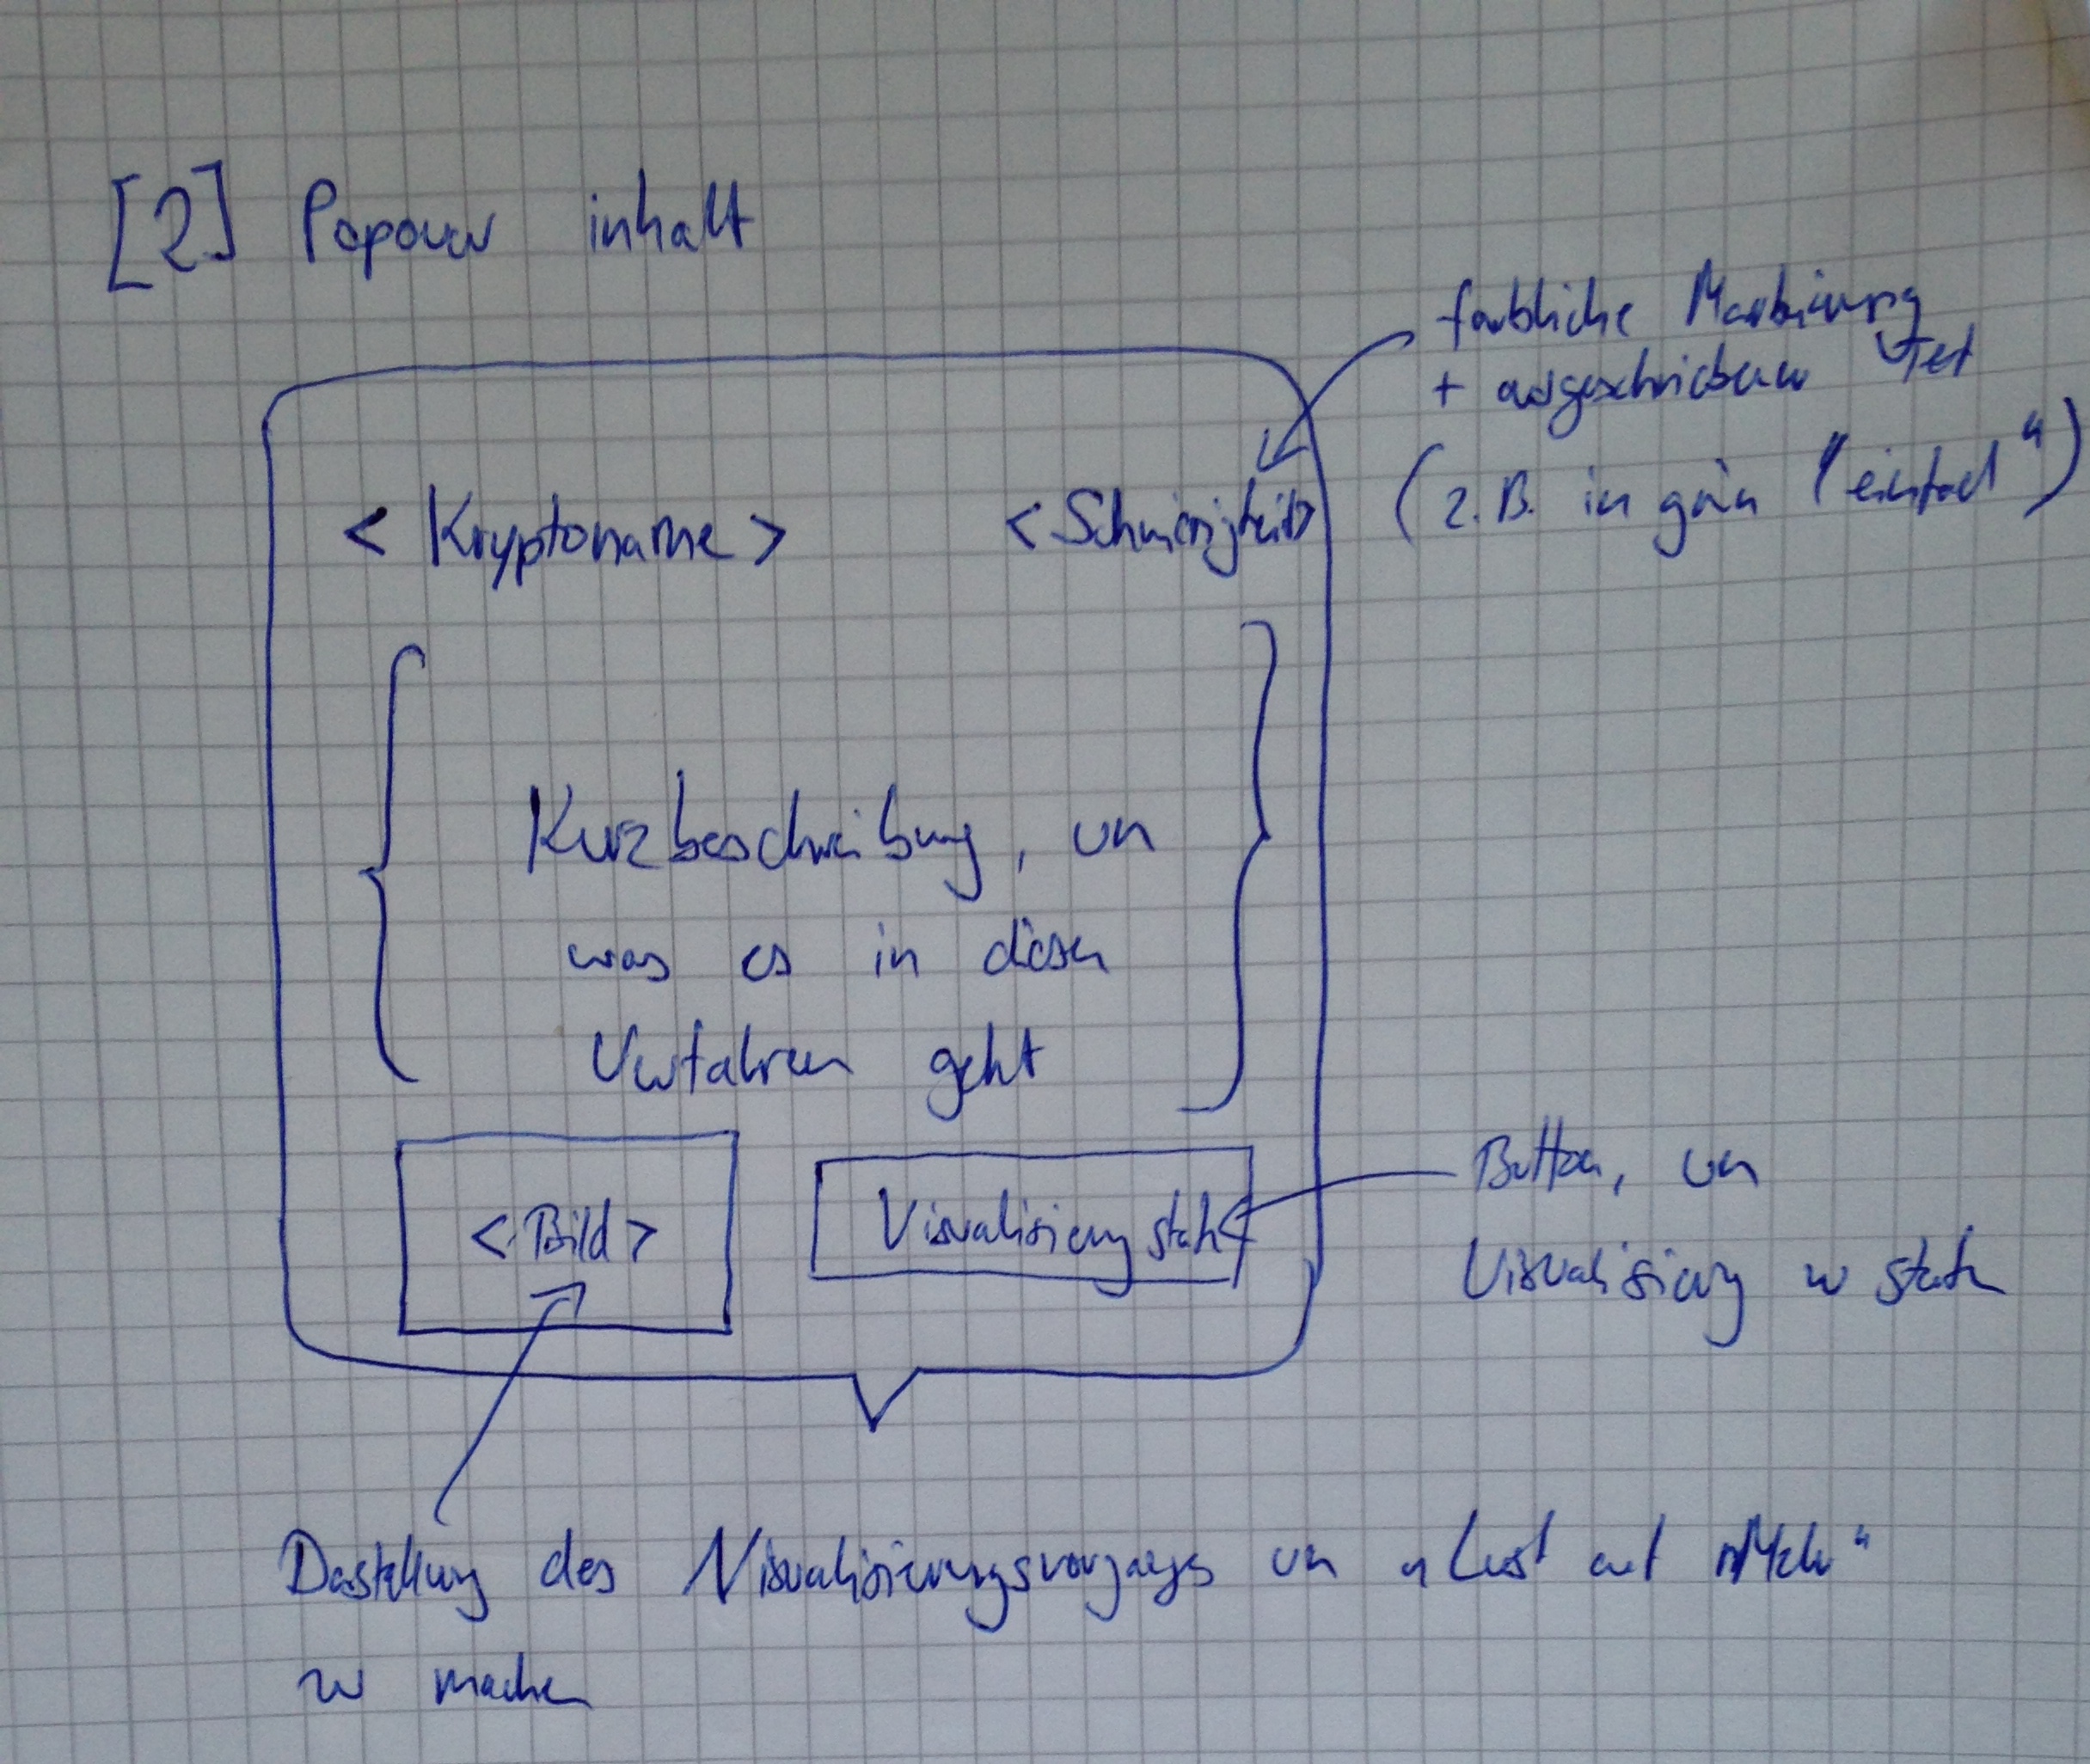 [2] Popover inhalt
farbliche Markierung
+ ausgeschriebener Text
(z.B. in grün "einfach")
<Kryptoname> <Schwierigkeit>
Kurzbeschreibung, um
was es in diesem
Verfahren geht
<Bild>
Visualisierung starten
Button, um
Visualisierung zu starten
Darstellung des Visualisierungsvorganges um "Lust auf Mehr"
zu machen